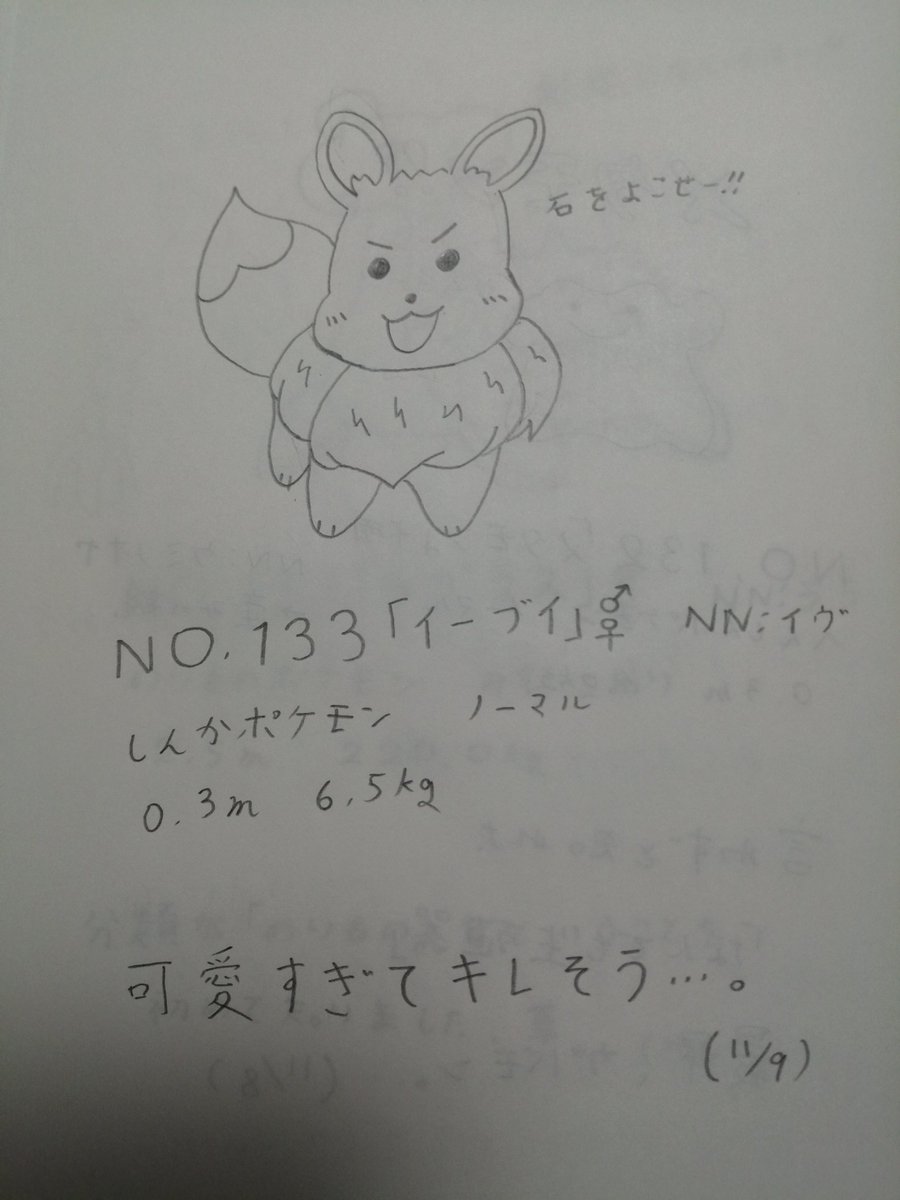 石をよこせー!!
NO.133「イーブイ」♂♀ NN:イヴ
しんかポケモン ノーマル
0.3m 6.5kg
可愛すぎてキレそう…。
(11/9)